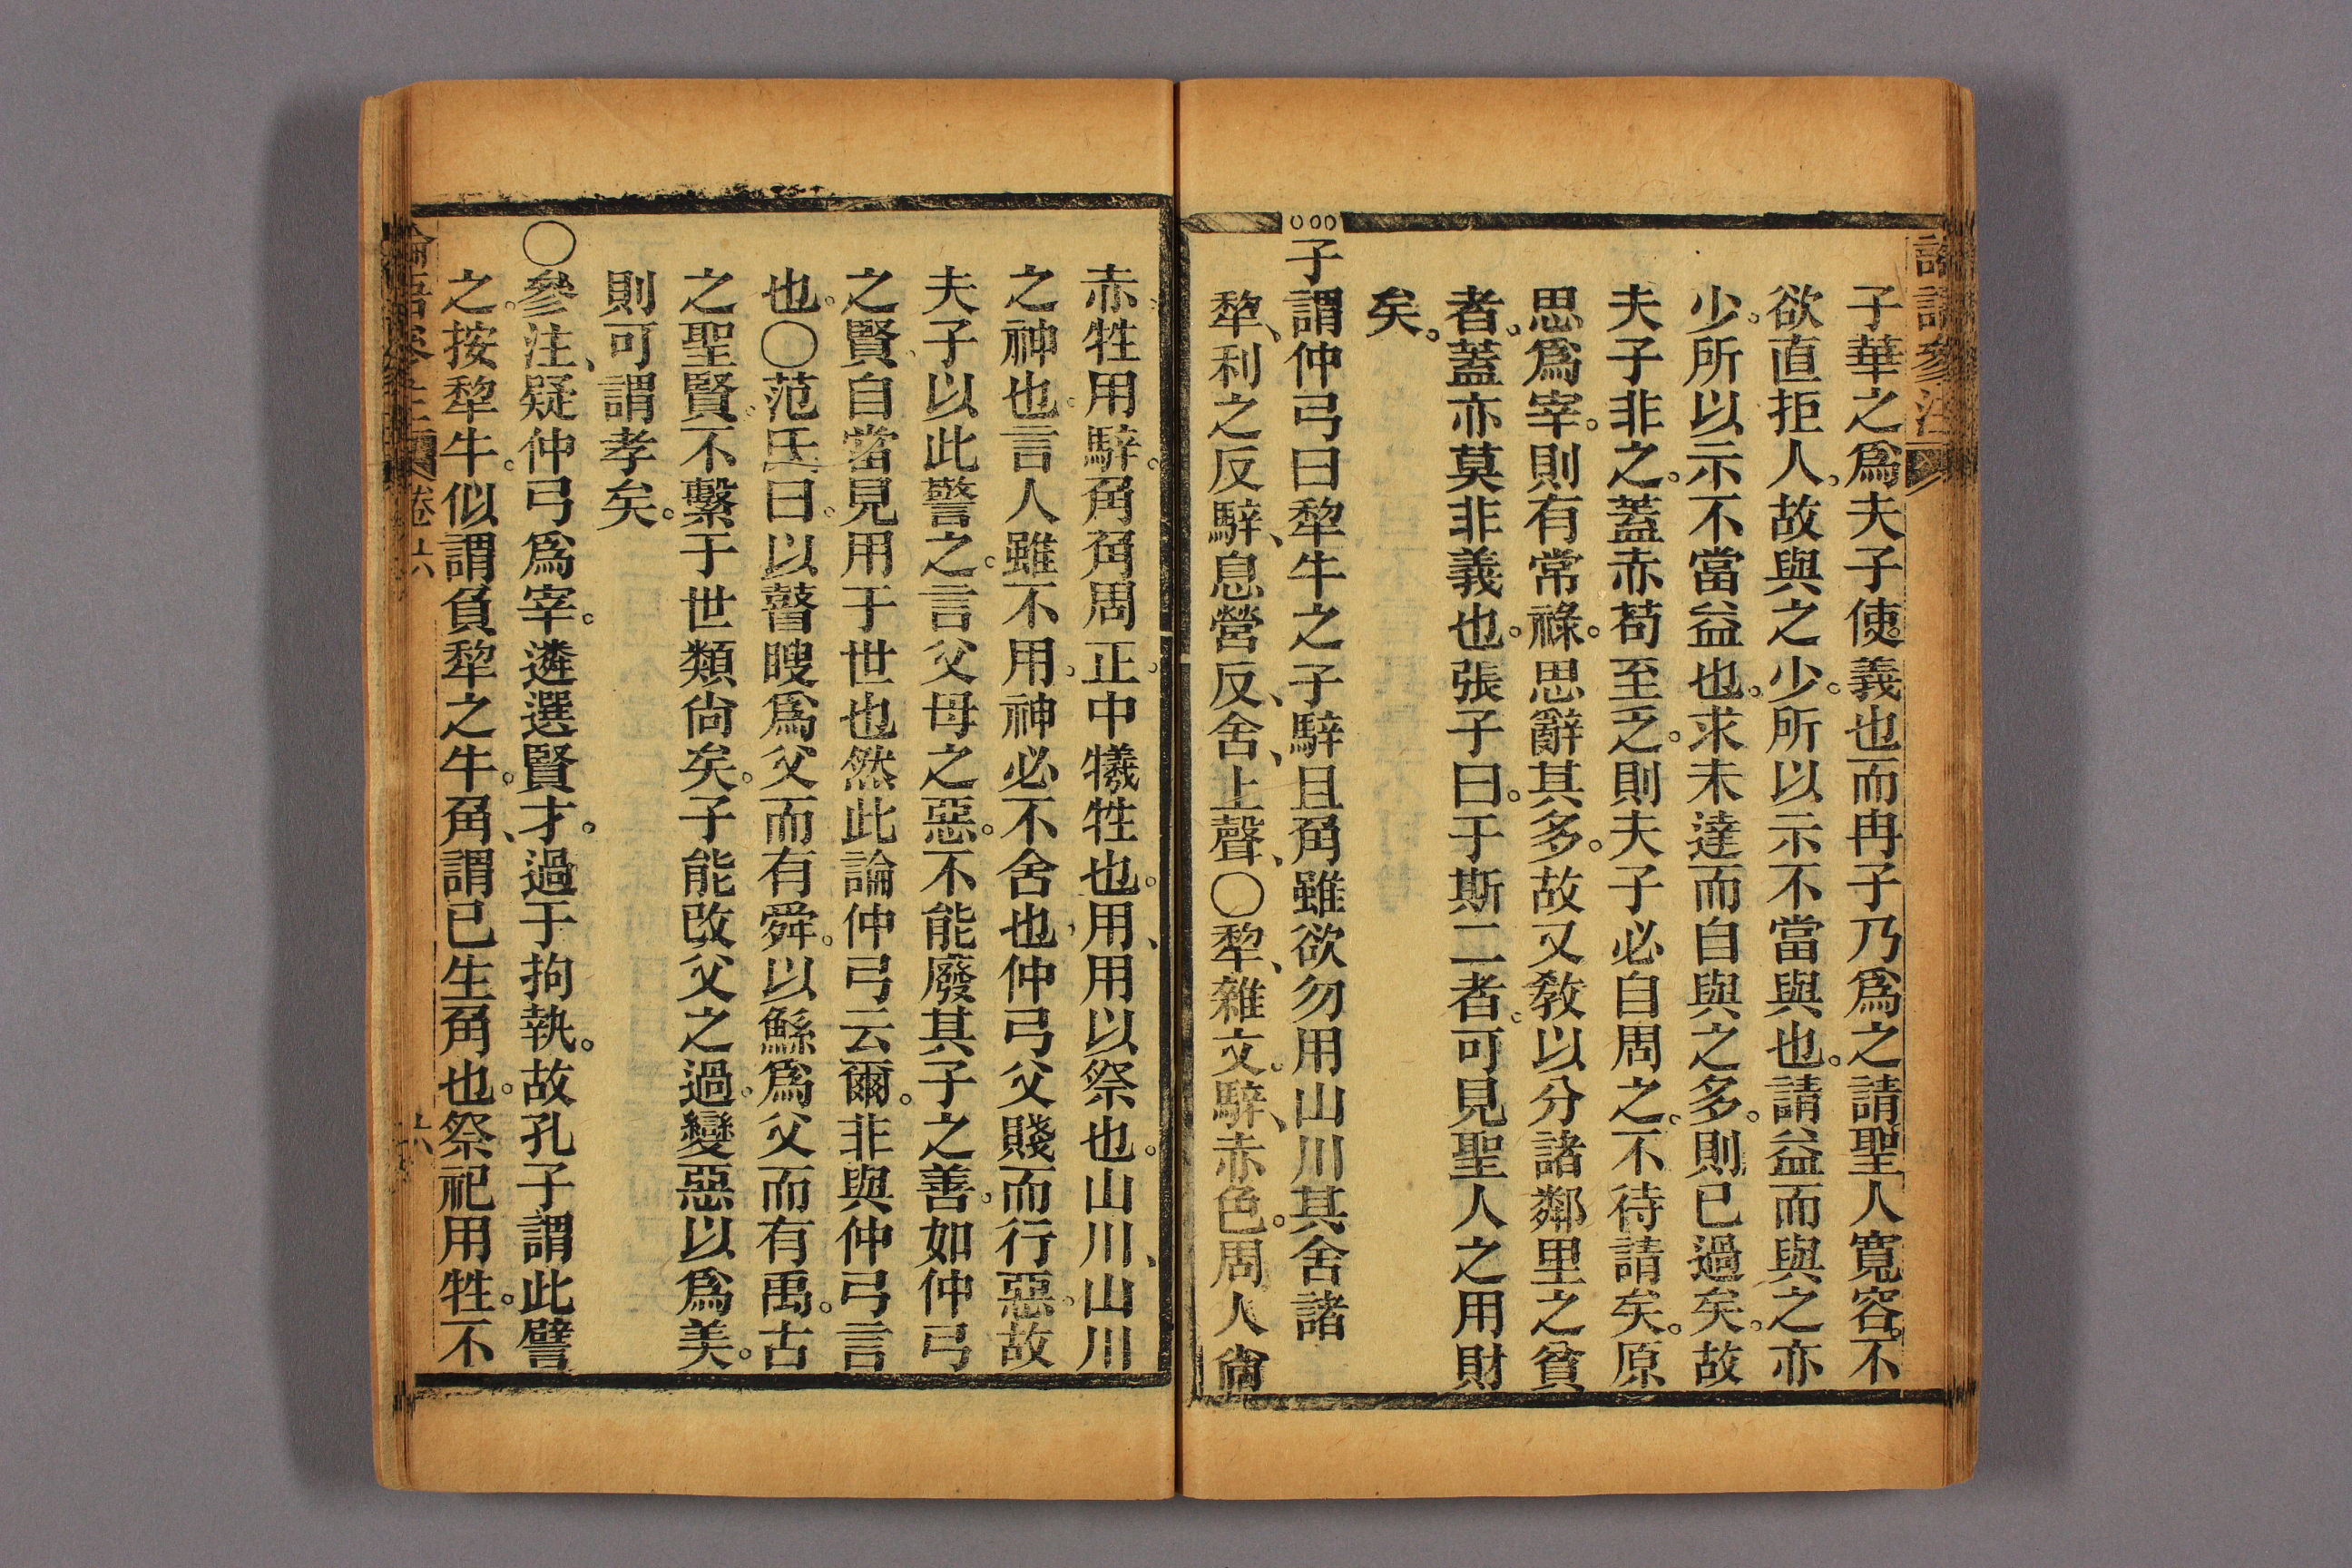 子華之爲夫子使。義也而冉子乃爲之請聖人寬容。不
欲直拒人。故與之少。所以示不當與也。請益而與之亦
少。所以示不當益也。求未達而自與之多。則已過矣。故
夫子非之。蓋赤苟至乏。則夫子必自周之。不待請矣。原
思爲宰。則有常祿。思辭其多。故又敎以分諸鄰里之貧
者。蓋亦莫非義也。張子曰。于斯二者。可見聖人之用財
矣。
子謂仲弓曰犂牛之子騂且角雖欲勿用山川其舍諸
犂、利之反騂、息營反、舍、上聲、○犂、雜文。騂、赤色。周人尙
赤。牲用騂。角角周正。中犧牲也。用、用以祭也。山川、山川
之神也。言人雖不用。神必不舍也、仲弓父賤而行惡。故
夫子以此警之。言父母之惡。不能廢其子之善。如仲弓
之賢、自當見用于世也然此論仲弓云爾。非與仲弓言
也。○范氏曰。以瞽瞍爲父而有舜。以鯀爲父而有禹。古
之聖賢。不繫于世類尙矣。子能改父之過。變惡以爲美。
則可謂孝矣。
○參注、疑仲弓爲宰。遴選賢才。過于拘執。故孔子謂此譬
之。按犂牛。似謂負犂之牛。角、謂已生角也。祭祀用牲。不
卷六
六